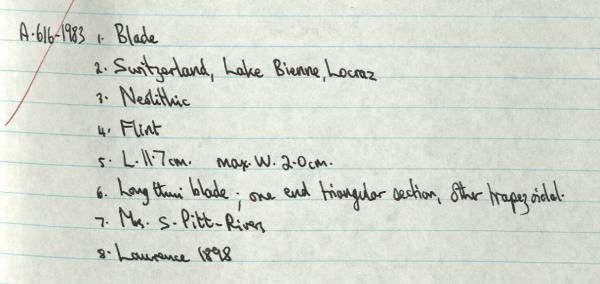 A.616-1983 1. Blade
2. Switzerland, Lake Bienne, Locraz
3. Neolithic
4. Flint
5. L. 11.7cm. max. W. 2.0cm.
6. Long thin blade; one end triangular section, other trapezoidal.
7. Mrs. S. Pitt-Rivers
8. Lawrence 1898